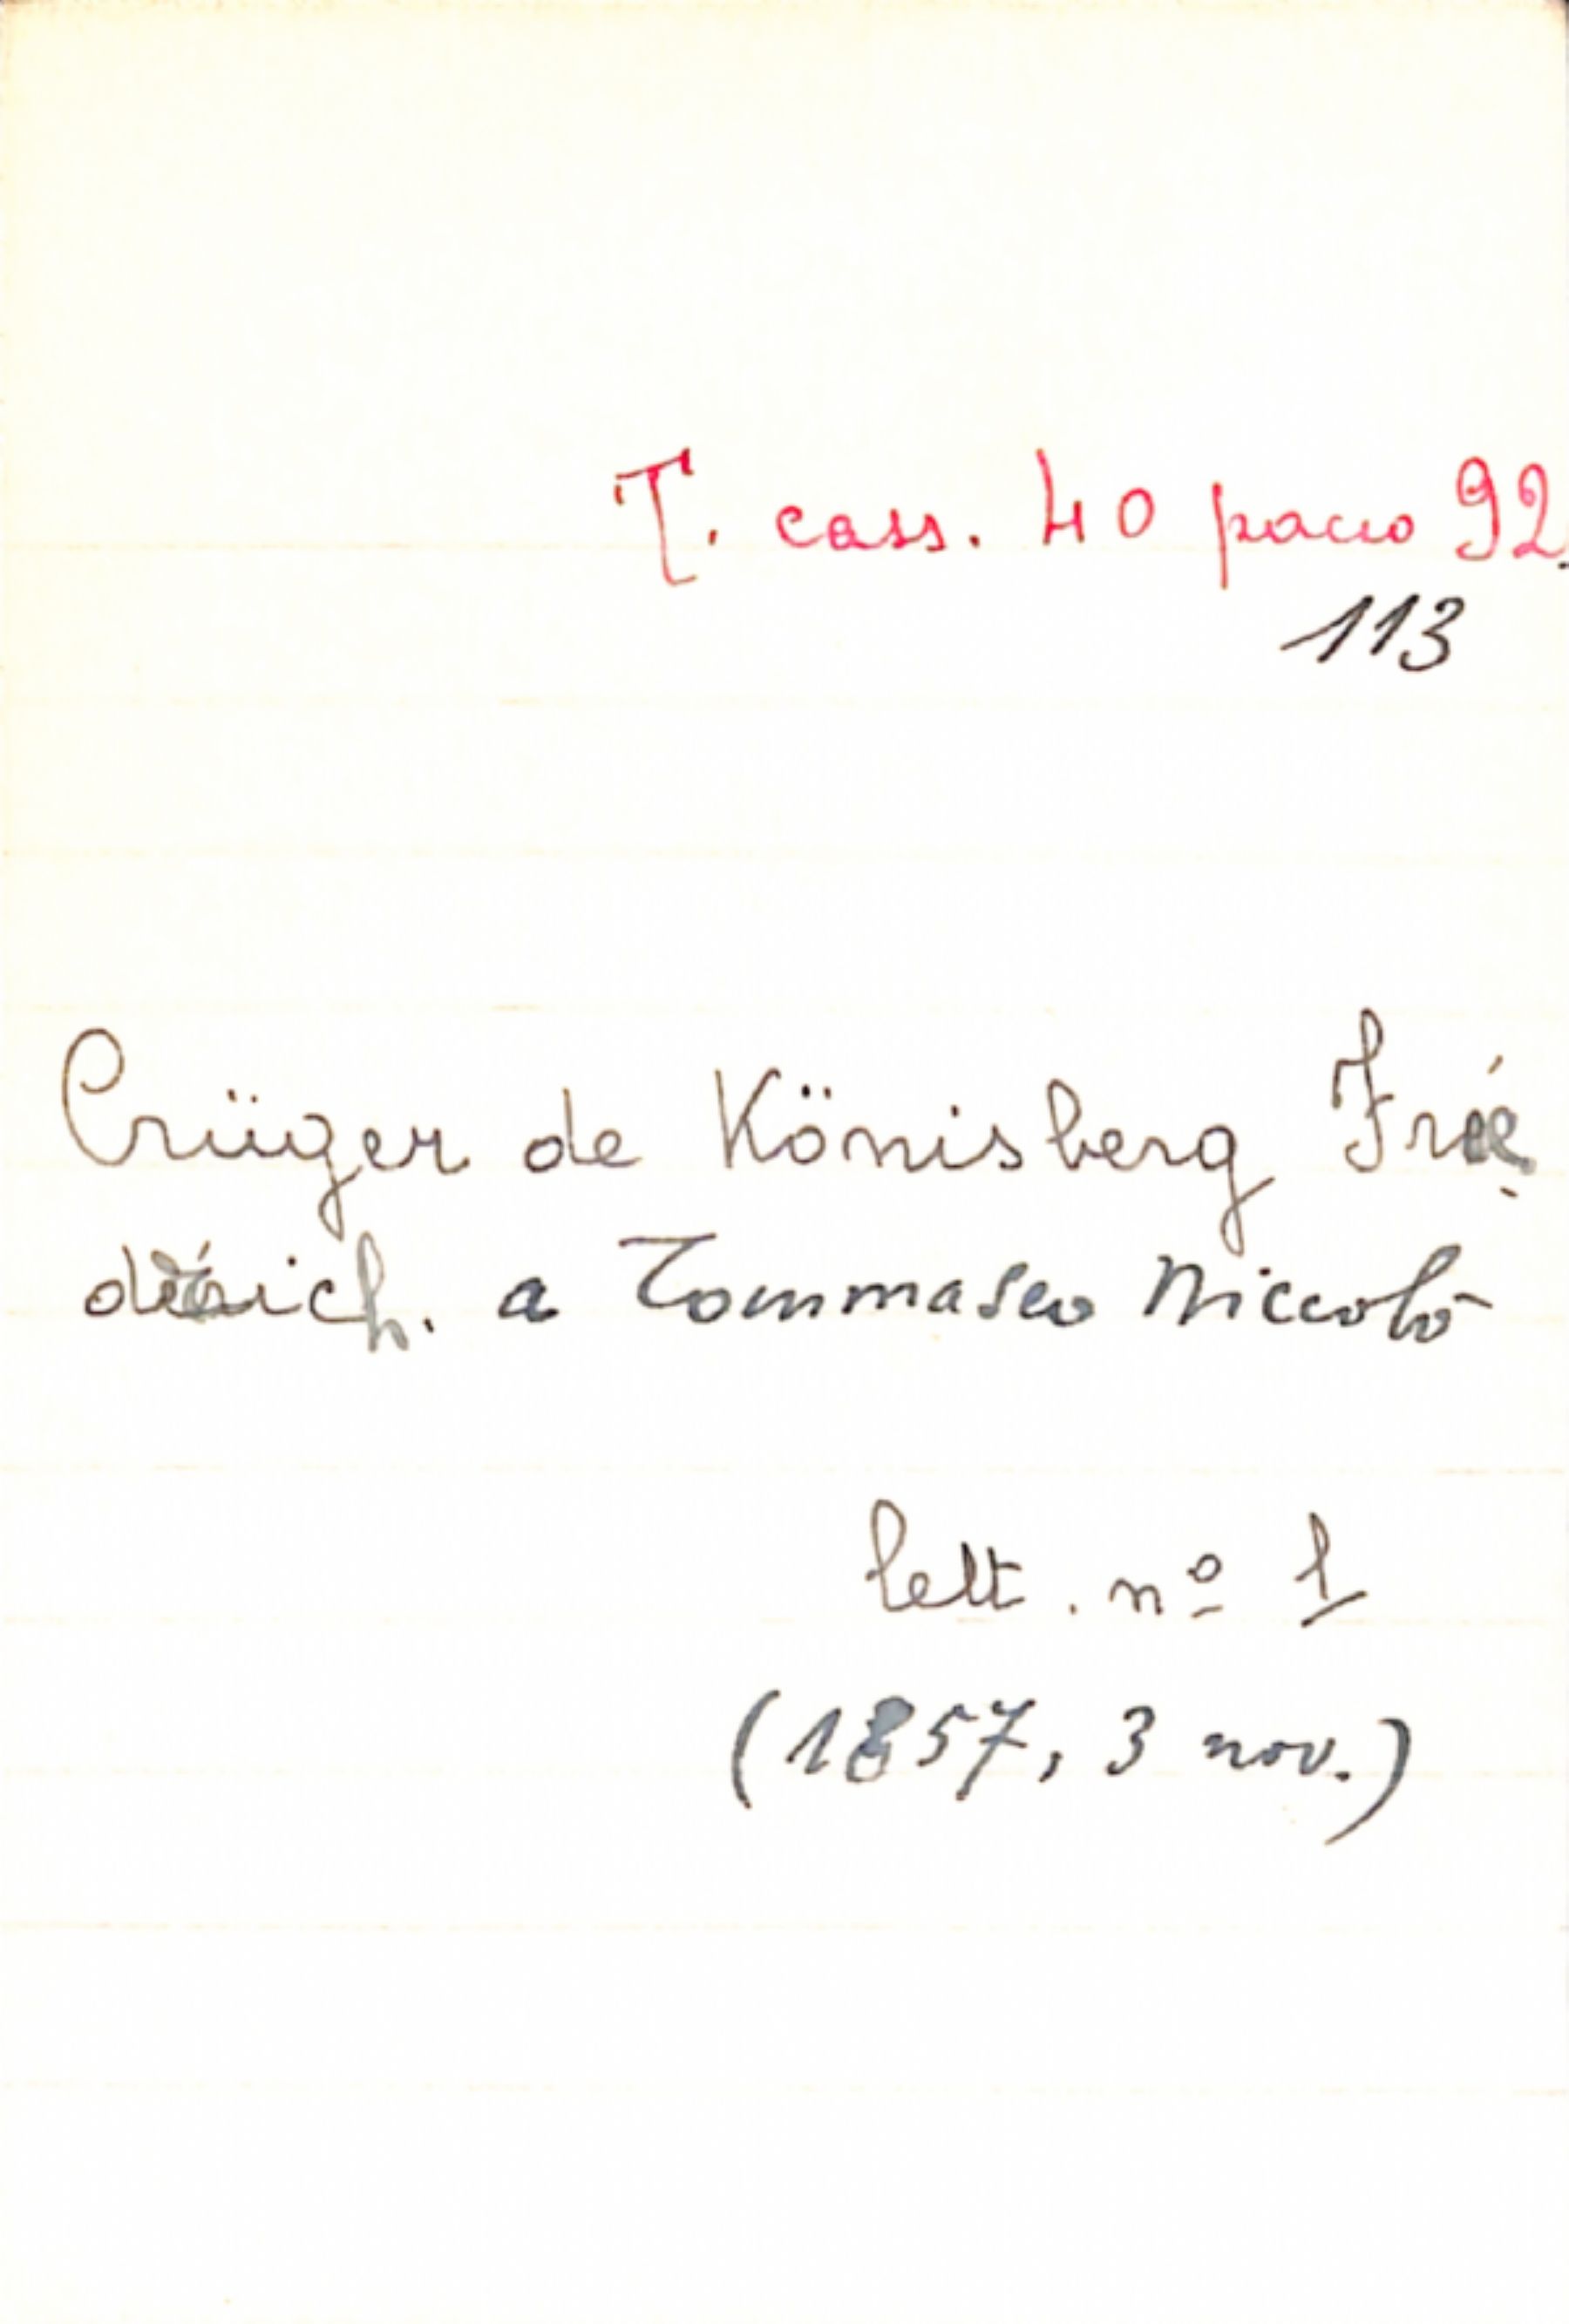 T. cass. 40 pacco 92.
113
Crüger de Könisberg Fré-
dérich. a Tommaseo Niccolò
lett. nº 1
(1857, 3 nov.)